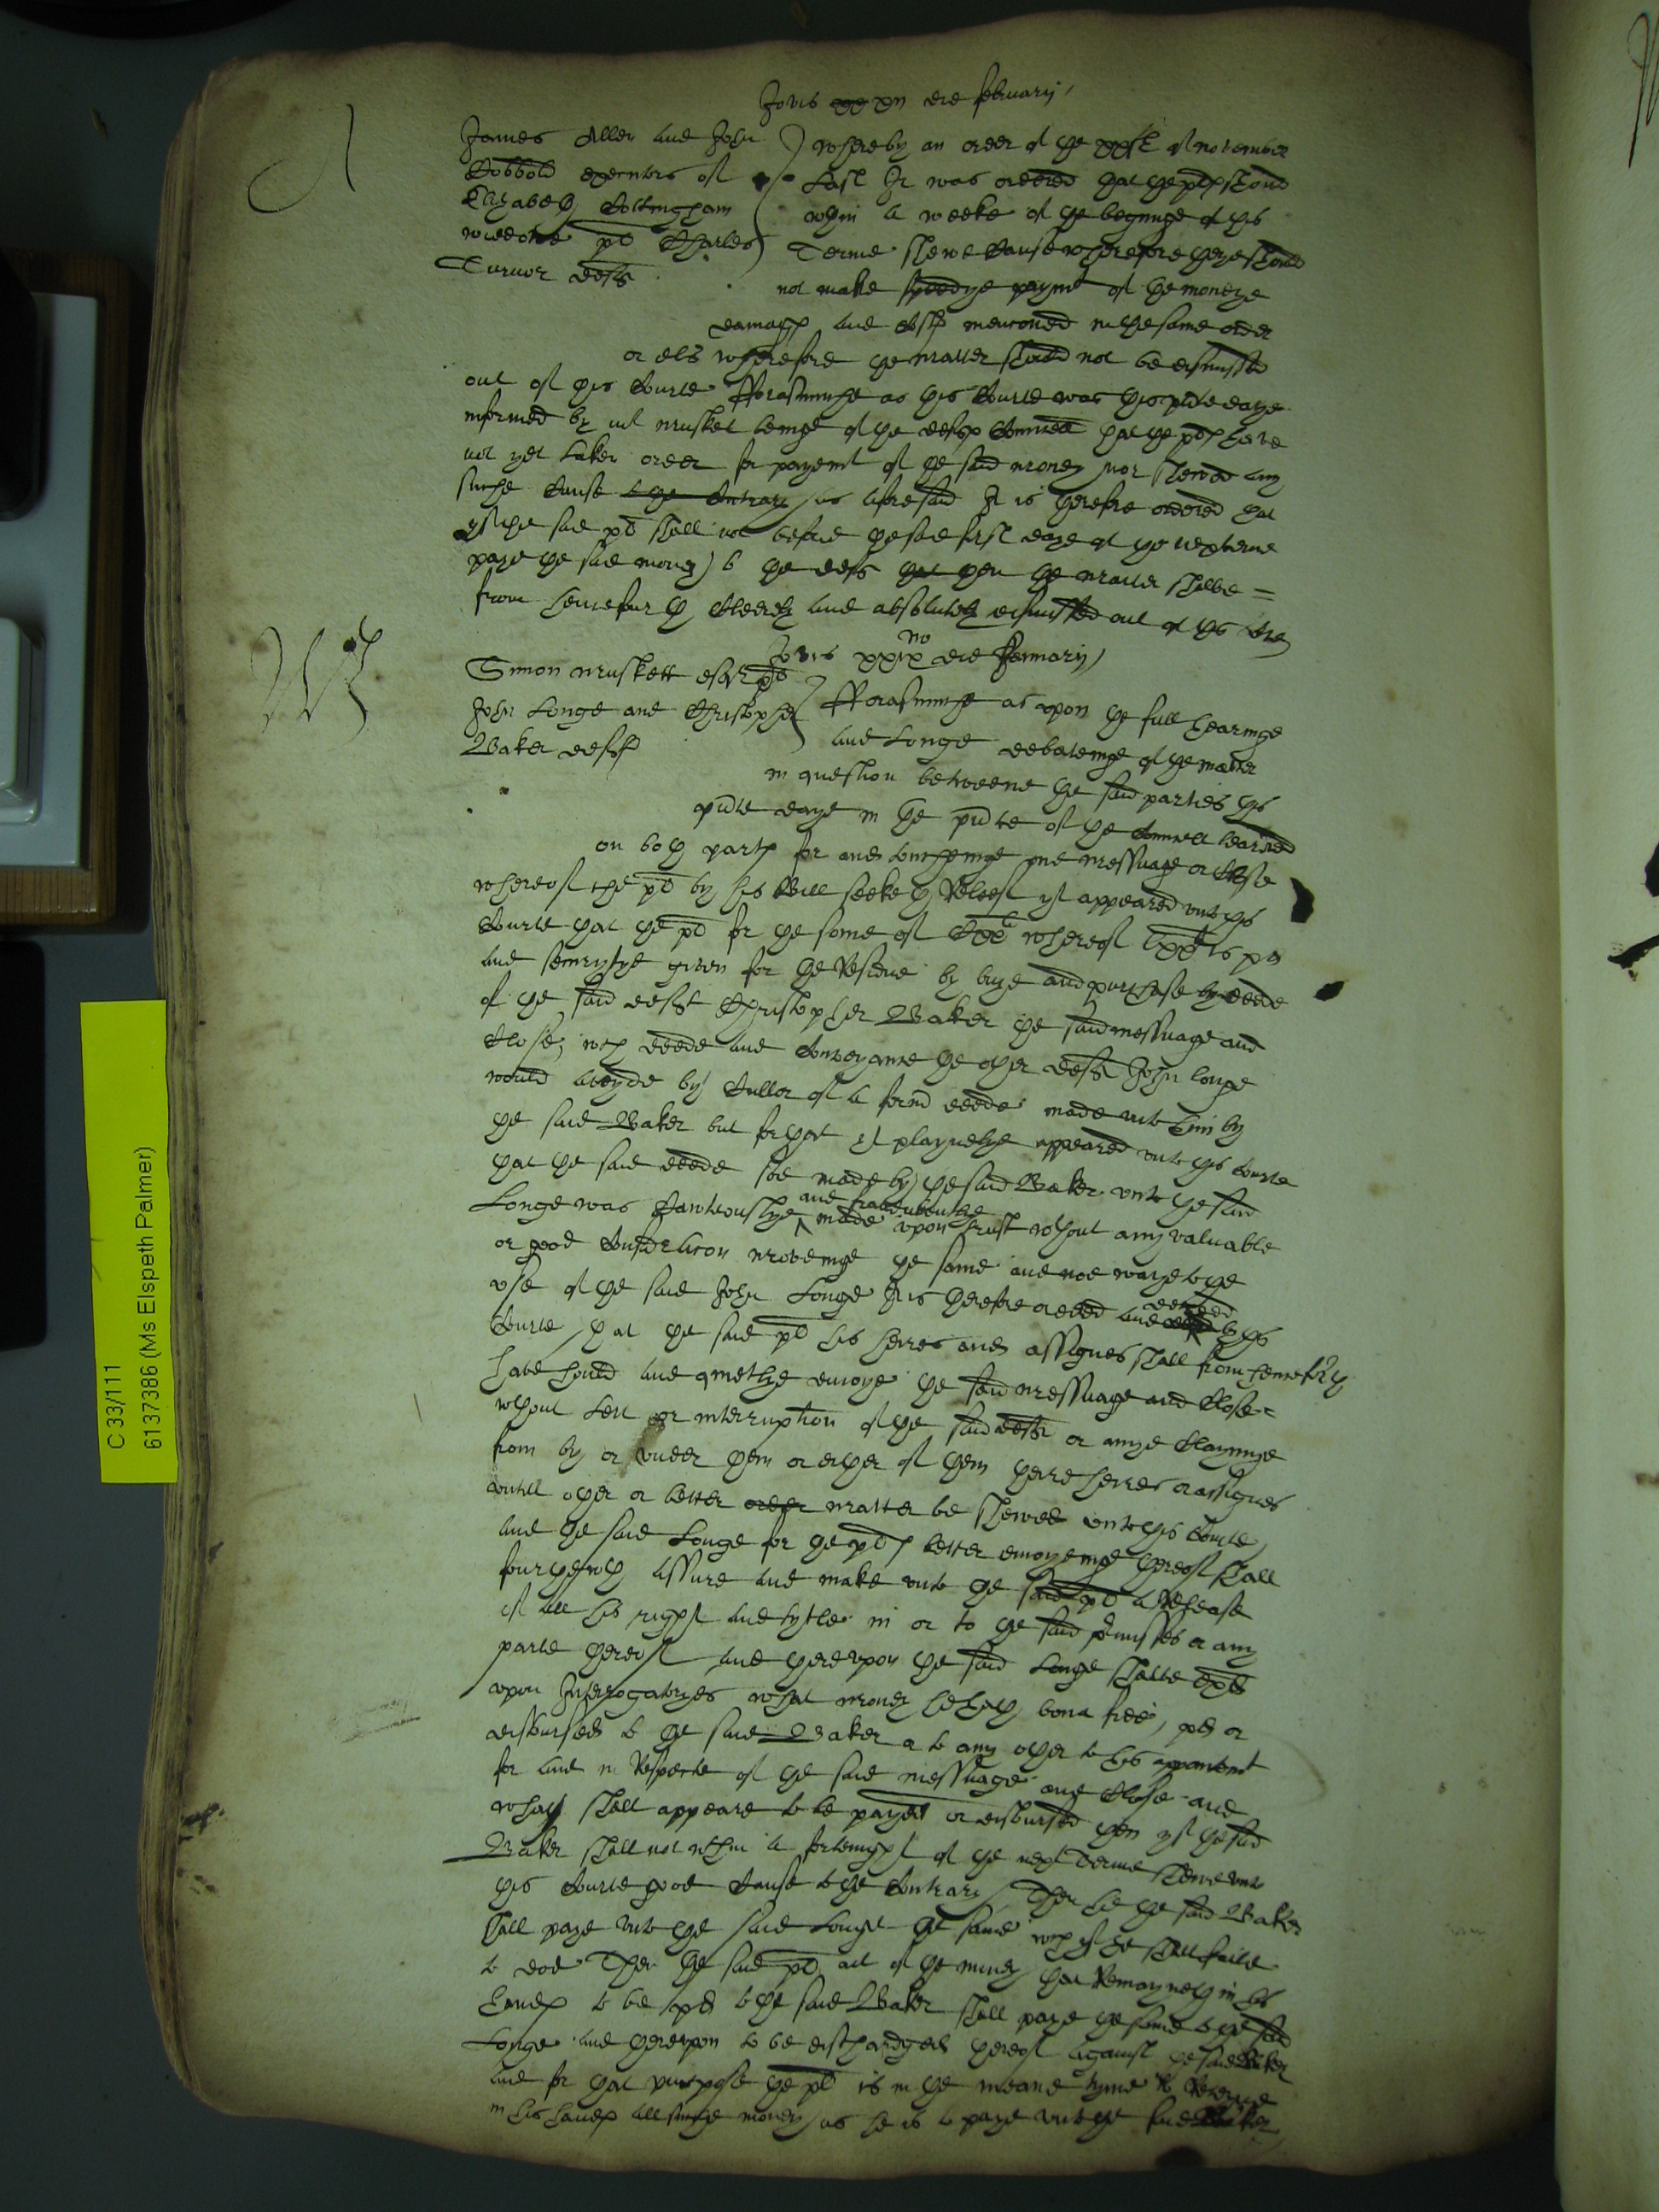 Jovis xii die february
James Aller and John
Cobbold executors of
Elizabeth Cottingham
widdowe plt Charles
Turnor deft
whereby an order of the of november
Last It was ordered that the pltes should
wthin a weeke of the begininge of this
Terme shewe cause wherefore theye should
not make speedye paymt of the moneye
damages and costes mencioned in the same order
or els wherefore the matter should not be dismissed
out of this Courte Fforasmuche as this Courte was this pnte daye
informed by mr muskett beinge of the deftes Counsell that the pltes have
not yet taken order for payemt of the said money nor shewed any
suche Cause to the Contrary as aforesaid It is therefore ordered that
yf the said plt shall not before the first daye of the next terme
paye the said money to the deft then the matter shalbe =
from henceforth Cleerely and absolutely dismissed out of this Crte
Jovis xxix no die January
Simon muskett esqr plt
John Longe and Christopher
Baker deftes
Fforasmuche as upon the full hearinge
and Longe debateinge of the matter
in question betweene the said parties this
pnte daye in the pnce of the Counsell learned
on both partes for and touchinge one messuage or Close
whereof the plt by his Bill seeketh Releef yt appeared unto this
Courte that the plt for the some of whereof is pd
and securitye given for the Residue by buye and purchase by deede
of the said deft Christopher Baker the said messuage and
Close, wch deede and Conveyance the other deft John Longe
would avoyde by Cullor of a formr deede made unto him by
the said Baker but forthat yt playnelye appeared unto this Courte
that the said deede soe made by the said Baker unto the said
Longe was and fraudulentlye made upon trust wthout any valuable
or good Consideracon moveinge the same and noe waye to the
use of the said John Longe It is therefore ordered and decreed by this
Courte that the said plt his heires and assignes shall from henceforth
have hould and quietlye enioye the said messuage and Close =
wthout Lett or interruption of the said deftes or anye Clayminge
from by or under them or either of them theire heires or assignes
untill other or better order matter be shewed unto this Courte
and the said Longe for the pltes better enioyeinge thereof shall
fourthwth assure and make unto the said plt a Release
of all his right and tytle in or to the said pmisses or any
parte thereof and thereupon the said Longe shalbe exd
upon Interrogatoryes what money he hath bona fide, pd or
disbursed to the said Baker or to any other to his appointmt
for and in Respecte of the said messuage and Close and
what shall appeare to be payed or disbursed then yf the said
Baker shall not wthin a fortenight of the next Terme shewe unto
this Courte good Cause to the Contrary Then he the said Baker
shall paye unto the said Longe the same wch yf he shall faile
to doe Then the said plt out of the money that Remayneth in his
handes to be pd to the said Baker shall paye the same to the said
Longe and thereupon to be dischardged thereof against the said Baker
and for that purpose the plt is in the meane tyme to Reserve
in his handes all suche money as he is to paye unto the said Baker
C 33/111
6137386 (Ms Elspeth Palmer)